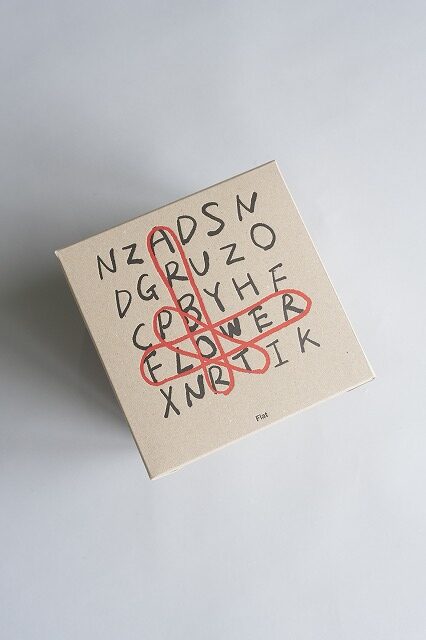 NZADSN
DGRUZO
CPBYHF
FLOWER
XNRTIK
Flat